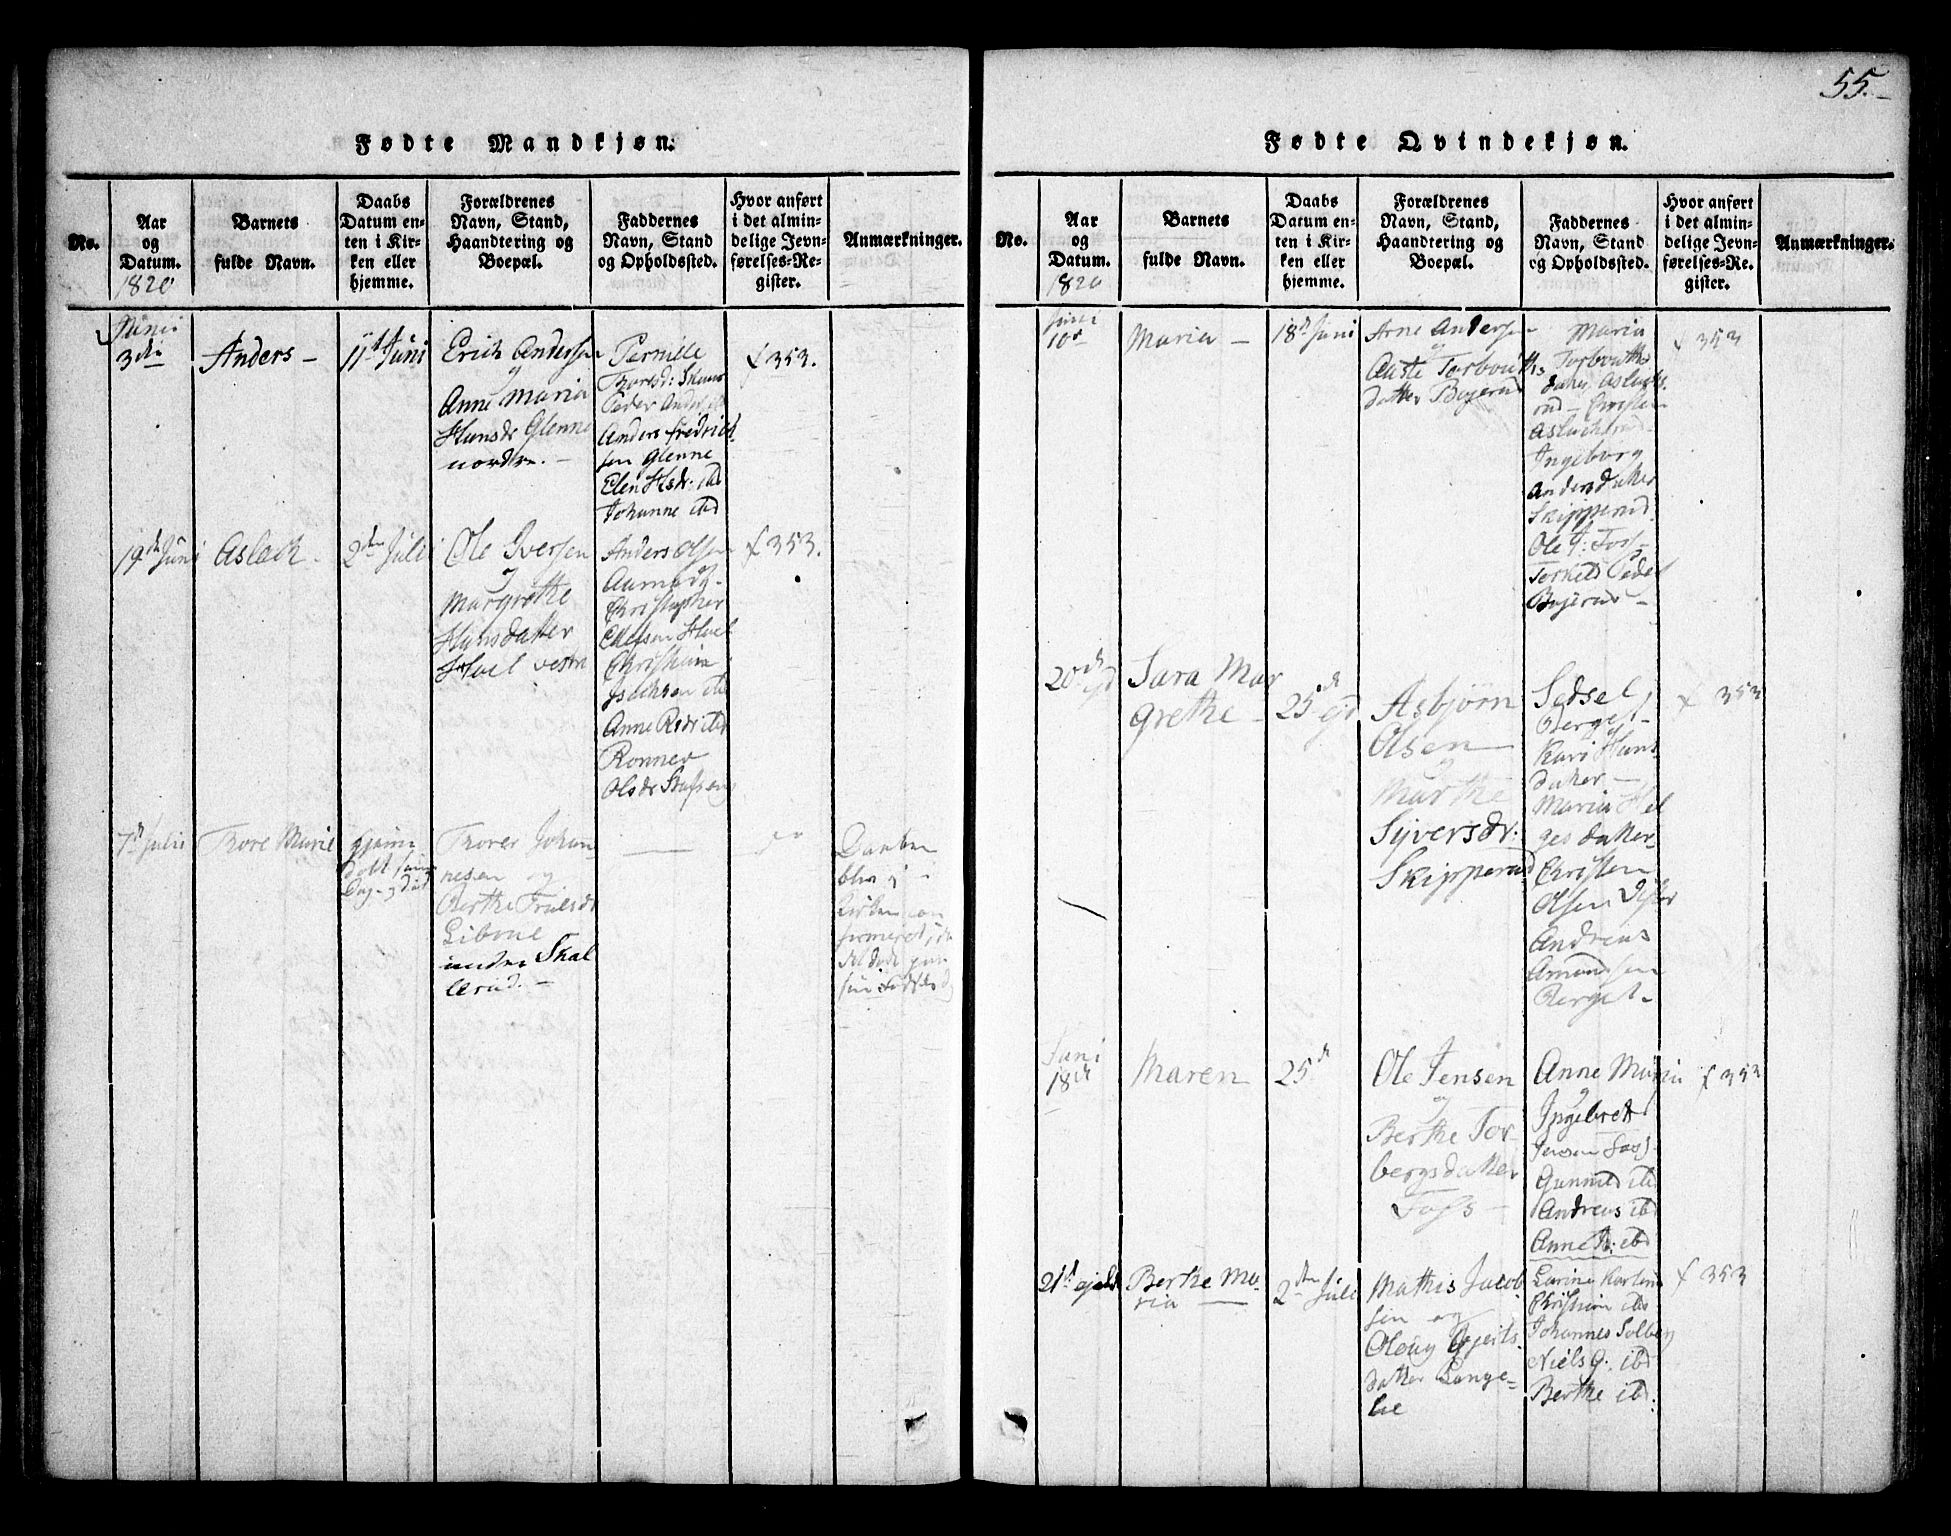 55.
Fødte Mandkjøn.
No.
Aar
og
Datum.
1820
Barnets
fulde Navn.
Daabs
Datum en-
ten i Kir-
ken eller
hjemme.
Forældrenes
Navn, Stand,
Haandtering og
Boepæl.
Faddernes
Navn, Stand
og Opholdssted.
Hvor anført
i det almin-
delige Jevn-
førelses-Re-
gister.
Anmærkninger.
Junii
3die
Anders –
11te Juni
Erich Andersen
og
Anne Maria
Hansdr Glenne
nordre. –
Pernille
Thorsd:
Peder
Anders Fredrich-
sen Glenne
Elen Hsdr: ibd
Johanne ibd
f 353.
19de Juni
Aslach.
2den Juli
Ole Iversen
og
Margrethe
Hansdatter
Hvel vestre
Anders Olsen
Christopher
Ellefsen Hvel
Christian
Isachsen ibd
Anne Rsdr ibd
Ronnev
Olsdr
f 353.
7de Julii
Thore Marie
Hjemme
døbt samme
Dag
Thorer Johan-
nesen og
Berthe Truelsdr
under Skal
lerud. –
Daaben
blev i
Kirken con
firmeret,
Fødte Qvindekjøn.
No.
Aar
og
Datum.
1820
Barnets
fulde Navn.
Daabs
Datum en-
ten i Kir-
ken eller
hjemme.
Forældrenes
Navn, Stand,
Haandtering og
Boepæl.
Faddernes
Navn, Stand
og Opholdssted.
Hvor anført
i det almin-
delige Jevn-
førelses-Re-
gister.
Anmærkninger.
Junii
10de
Maria –
18de Juni
Arne Andersen
og
Aaste Torbouths
datter Bøjerud
Maria
Torbouths
datter Aslachs
rud – Christen
Aslachsrud
Ingeborg
Andersdatter
Skipperud
Ole J: Foss –
Torkild Peders
Bøjerud –
f 353
20de ejd
Sara Mar
grethe –
25de ejd
Asbjørn
Olsen
og
Marthe
Syversdr:
Skipperud
Sedsel
Berget –
Kari Hans
datter –
Maria Hel
gesdatter –
Christen
Olsen
Andreas
Amundsen
Berget –
f 353
Juni
18de
Maren
25de
Ole Jensen
og
Berthe Tor
bergsdatter
Foss –
Anne Maria
og
Ingebret
Jensen Foss
Gunnild ibd
Andreas ibd
Anne ibd
f 353
21de ejusd
Berthe Ma-
ria –
2den Juli
Mathis Jacob
sen og
datter Lange-
Larine Karline
Christian ibd
Johannes Solberg
Niels G. ibd
Berthe ibd:
f 353